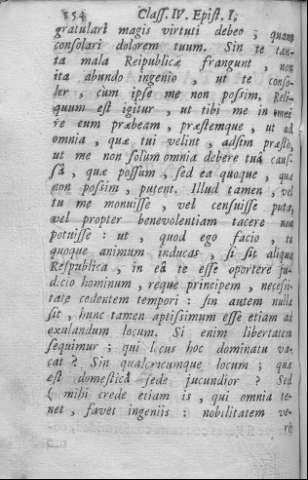 254 Class. IV. Epist. I.
gratulari magis virtuti debeo ; quam
consolari dolorem tuum. Sin te tan-
ta mala Reipublicæ frangunt , non
ita abundo ingenio , ut te conso-
ler , cùm ipse me non possim. Reli-
quum est igitur , ut tibi me in omni
re eum præbeam , præstemque , ut ad
omnia , quæ tui velint , adsim præsto,
ut me non solùm omnia debere tuâ caus-
sâ , quæ possum , sed ea quoque , quæ
non possim , putent. Illud tamen , vel
tu me monuisse , vel censuisse puta,
vel propter benevolentiam tacere non
potuisse : ut , quod ego facio , tu
quoque animum inducas , si sit aliqua
Respublica , in eâ te esse oportere ju-
dicio hominum , reque principem , necessi-
tate cedentem tempori : sin autem nulla
sit , hunc tamen aptissimum esse etiam ad
exulandum locum. Si enim libertatem
sequimur ; qui locus hoc dominatu va-
cat ? Sin qualemcumque locum ; quæ
est domesticâ sede jucundior ? Sed
mihi crede etiam is , qui omnia te-
net , favet ingeniis : nobilitatem ve-
rò